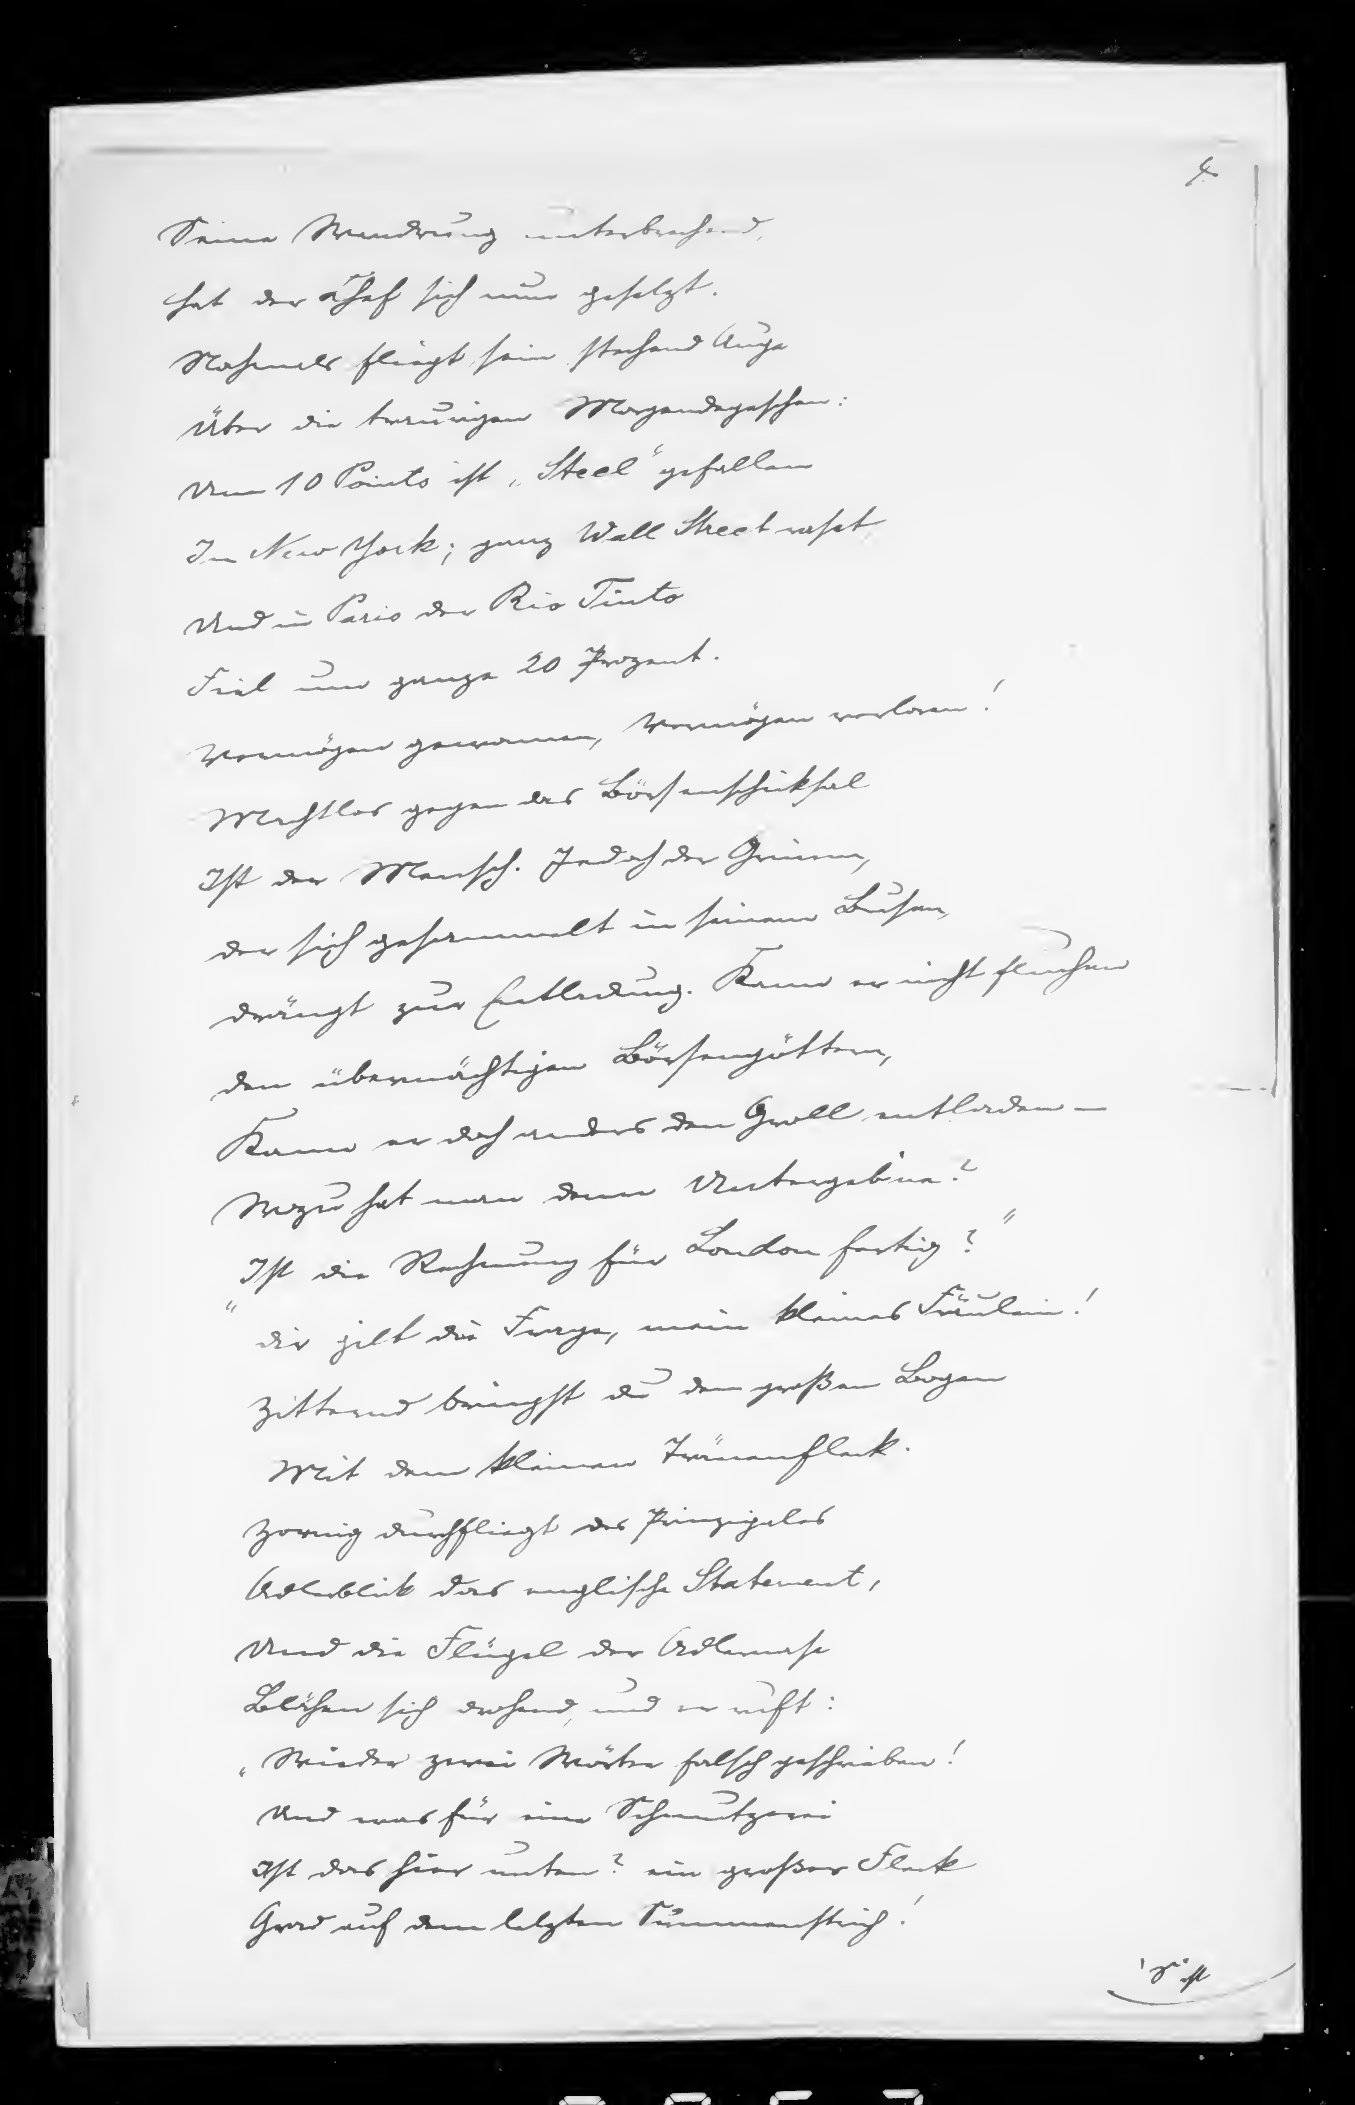 4.
Seine Wandrung unterbrechend,
hat der Chef sich nun gesetzt.
Nochmals fliegt sein stechend Auge
Über die traurigen Morgendepeschen:
Um 10 Points ist „Steel“ gefallen
In New York; ganz Wall Street rast,
Und in Paris der Rio Tinto
Fiel um ganze 20 Prozent.
Vermögen gewonnen, Vermögen verloren!
Machtlos gegen das Börsenschiksal
Ist der Mensch. Jedoch der Grimm,
der sich gesammelt in seinem Busen,
drängt zur Entladung. Kann er nicht fluchen
den übermächtigen Börsengöttern,
Kann er doch anders den Groll entladen –
Wozu hat man denn Untergebne?
"Ist die Rechnung für London fertig?"
dir gilt die Frage, mein kleines Fräulein!
Zitternd bringst du den großen Bogen
Mit dem kleinen Tränenfleck.
Zornig durchfliegt des Prinzipales
Adlerblick das englische Statement,
Und die Flügel der Adlernase
Blähen sich drohend, und er ruft:
„Wieder zwei Wörter falsch geschrieben!
Und was für eine Schmutzerei
Ist das hier unten? ein großer Fleck
Grad auf dem letzten Summenstrich!